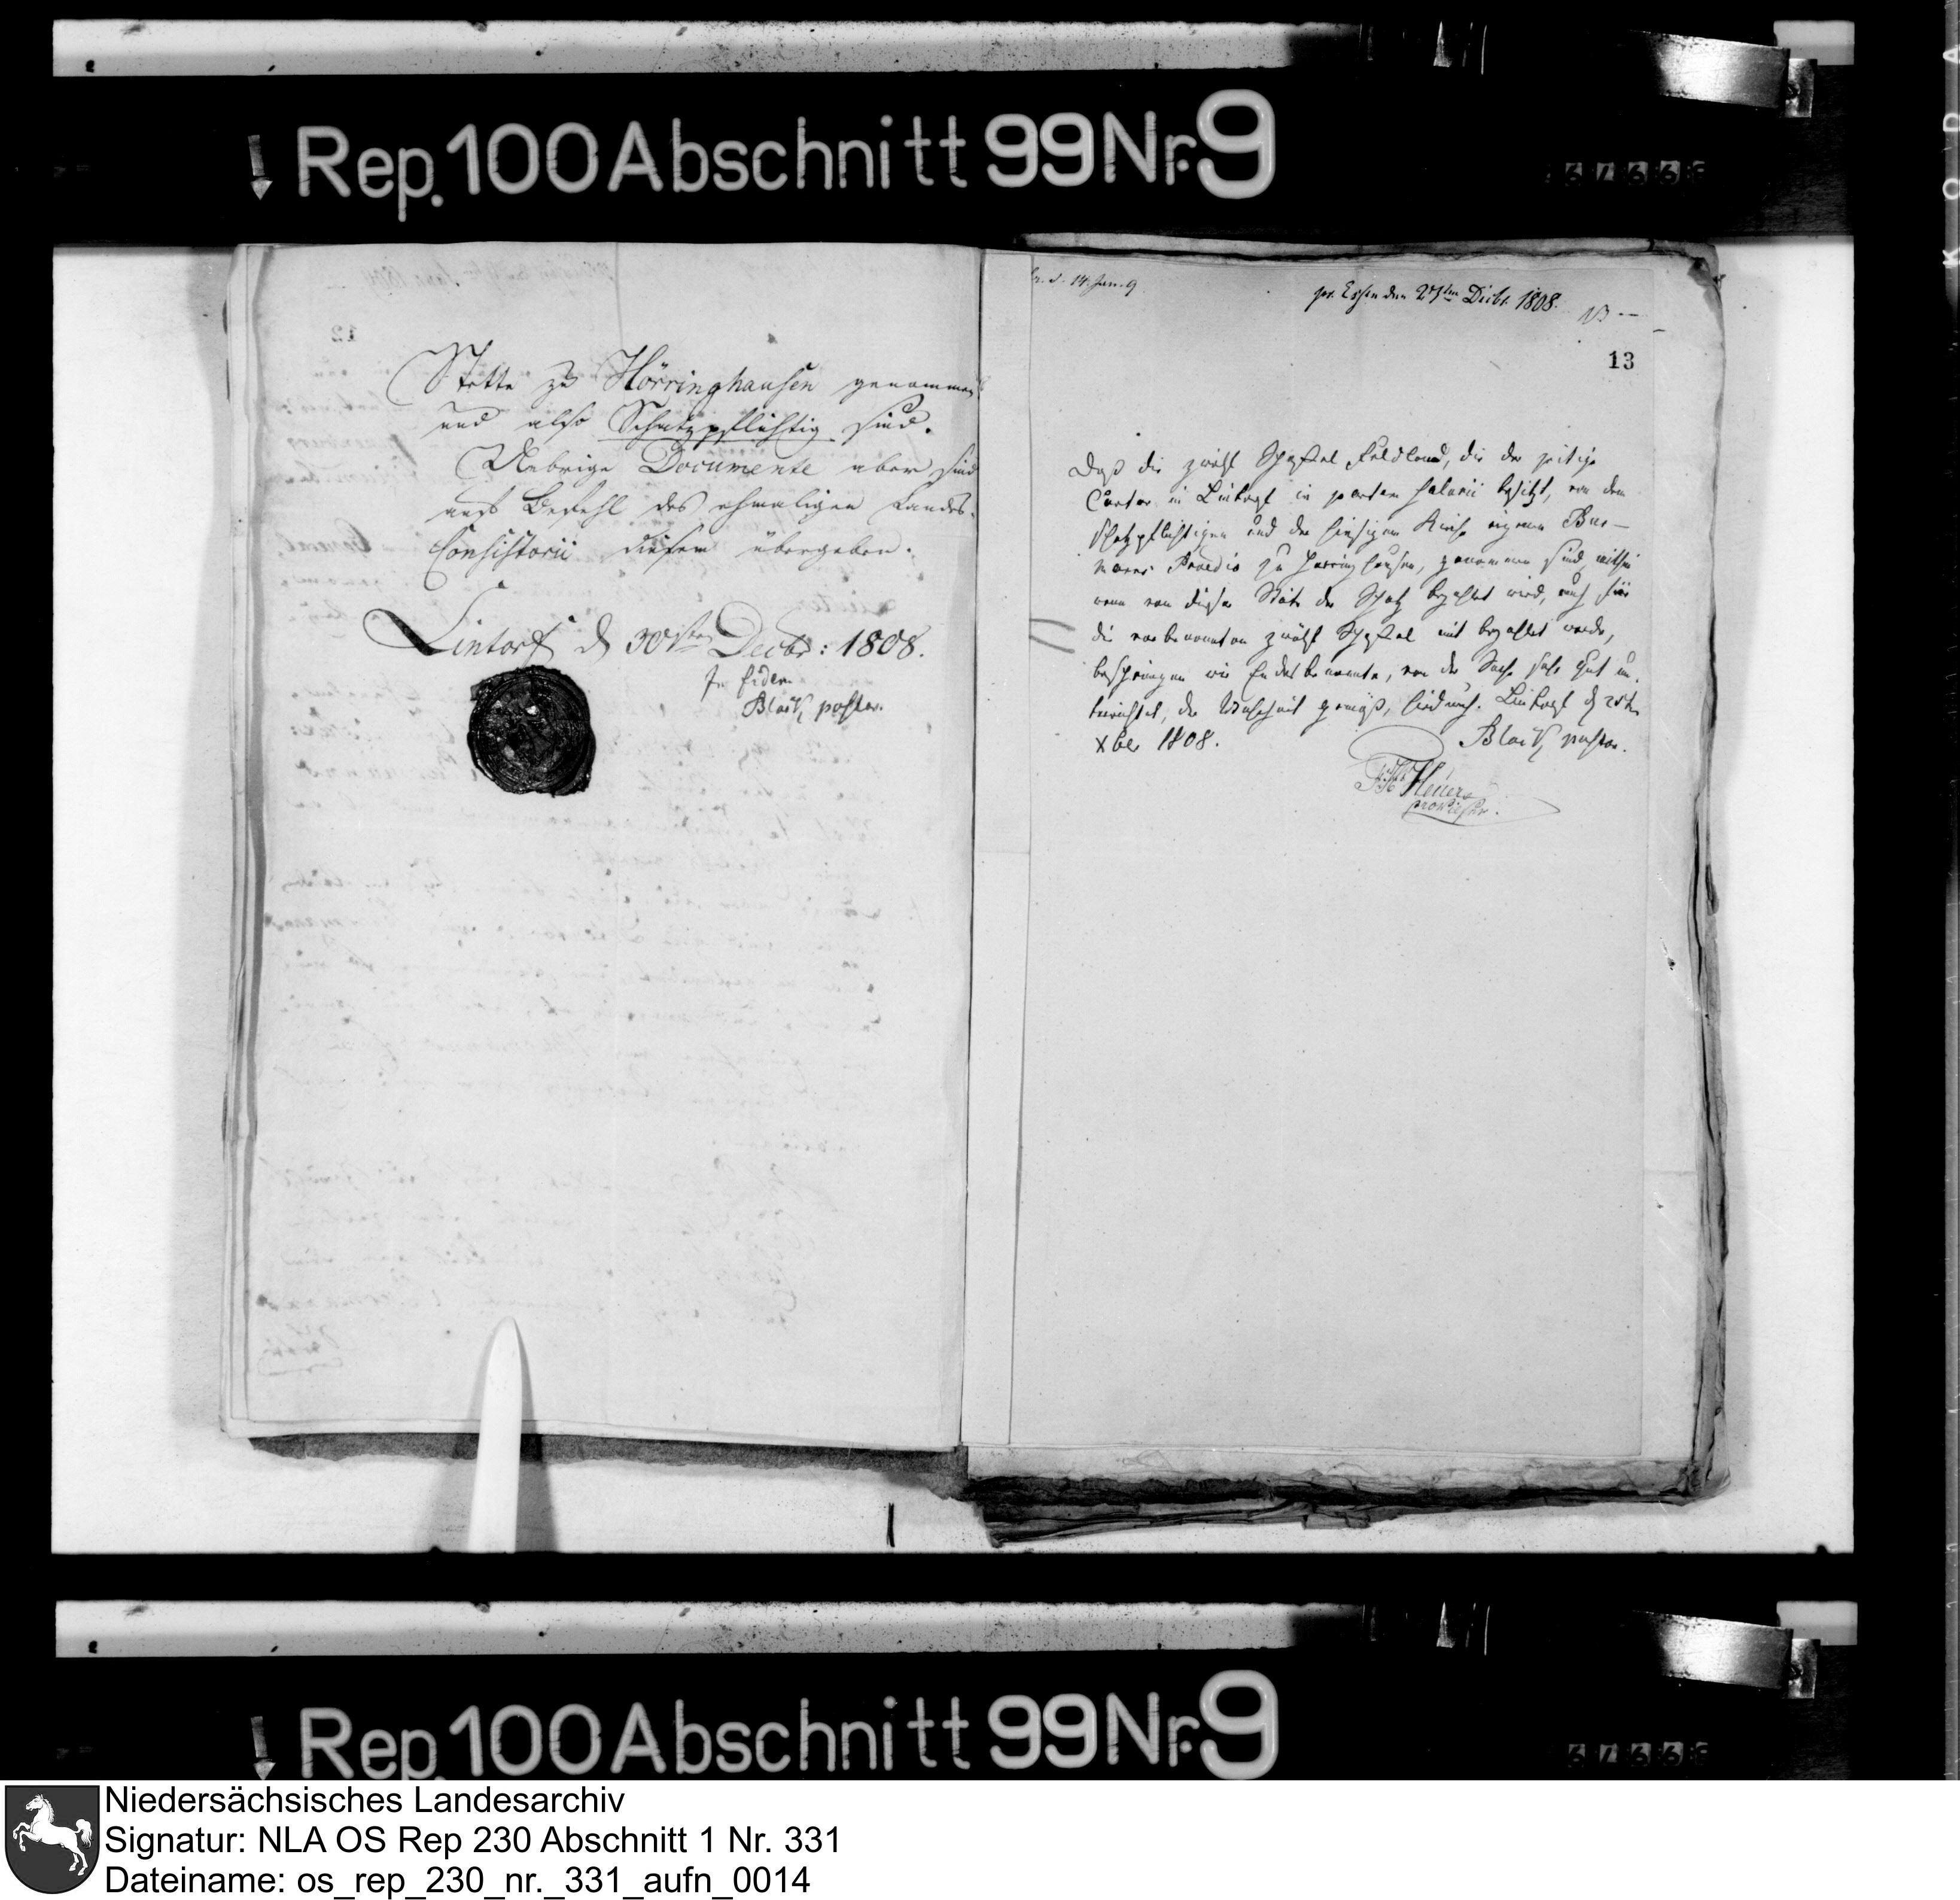 Rep. 100 Abschnitt 99 Nr. 9
Stette zu Hörringhausen genommen
und also Schatzpflichtig sind.
Uebrige Documente aber sind
auf Befehl des ehmaligen Landes-
Consistorii diesem übergeben.
Lintorf d 30sten Decbr: 1808.
In fidem
pastor.
14. Jan. 9
pr. Essen den Decbr. 1808.
13
Daß die zwölf Scheffel Feldland, die der zeitige
Cantor in Lintorf in partem salarii besitzt, von dem
schatzpflichtigen und der hiesigen Kirche eigenen Bus-
manns Praedio zu Herringhausen, genommen sind, mithin
wenn von dieser Stäte der Schatz bezahlet wird, auch für
die vorbenannten zwölf Scheffel mit bezahlet werde,
bescheinigen wir Endesbenannte, von der Sache sehr gut un-
terrichtet, der Wahrheit gemäß, hiedurch. Lintorf d
Xber 1808.
pastor.
Meiers
provisor.
Rep. 100 Abschnitt 99 Nr. 9
Niedersächsisches Landesarchiv
Signatur: NLA OS Rep 230 Abschnitt 1 Nr. 331
Dateiname: os_rep_230_nr._331_aufn_0014